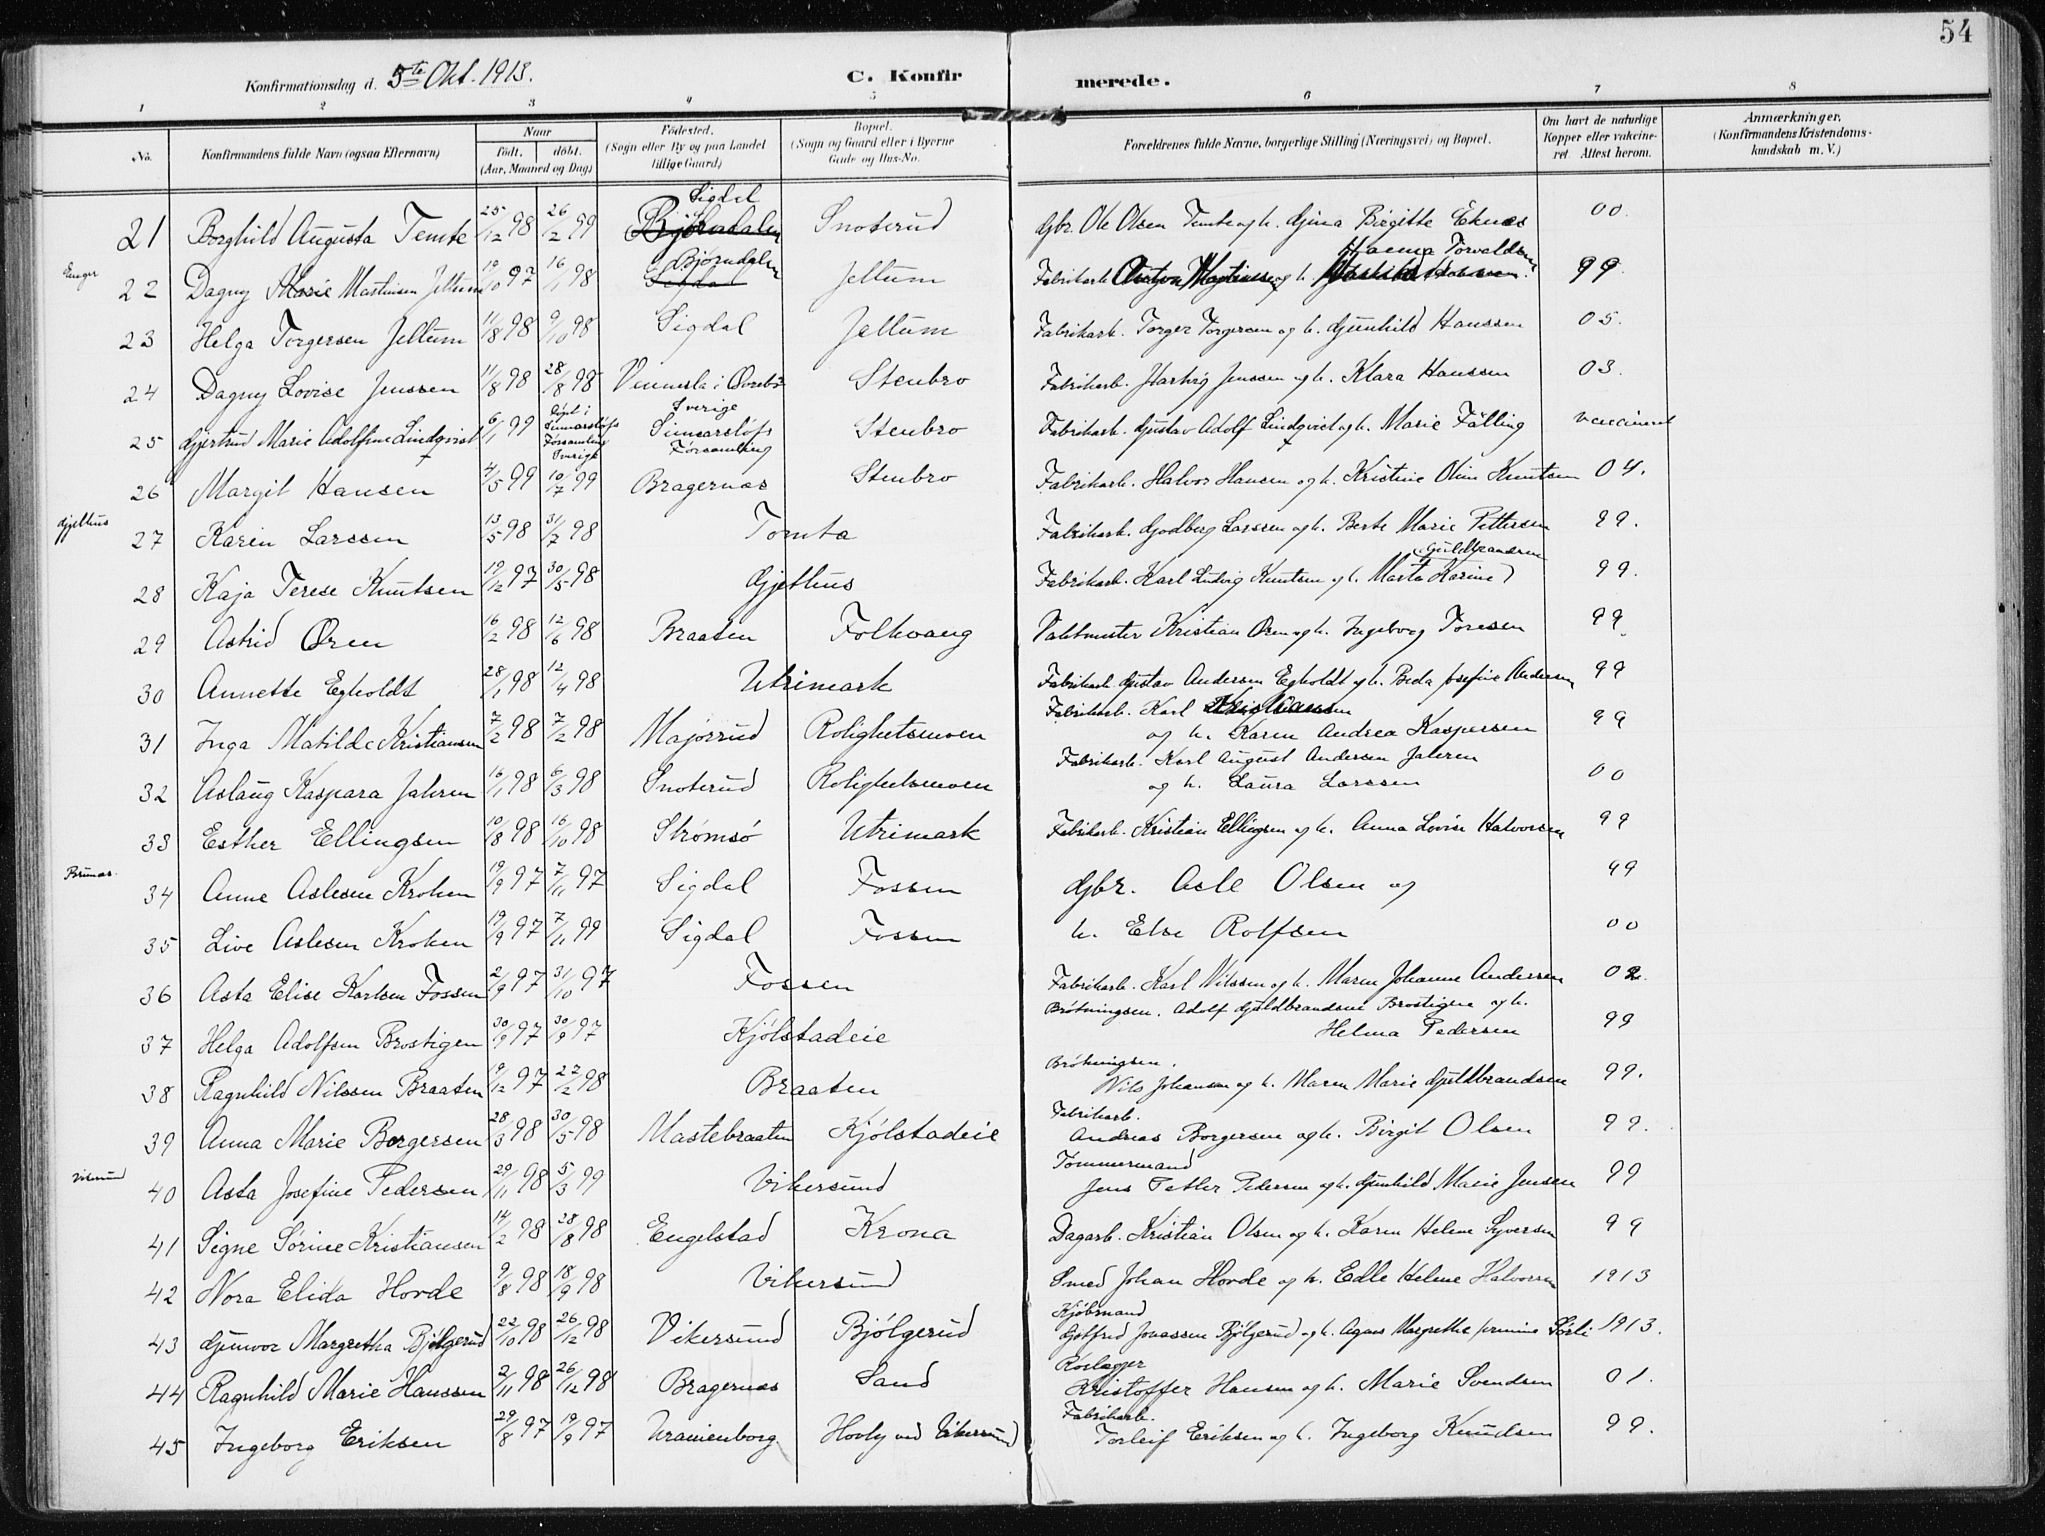 54
Konfirmationsdag d. 5te Okt. 1913. C. Konfirmerede.
1 2 3 4 5 6 7 8
No. Konfirmandens fulde Navn (ogsaa Efternavn) Naar født, døbt. (Aar, Maaned og Dag) Fødested. (Sogn eller By og paa Landet tillige Gaard) Bopæl. (Sogn og Gaard eller i Byerne Gade og Hus-No. Forældrenes fulde Navne, borgerlige Stilling (Næringsvei) og Bopæl. Om havt de naturlige Kopper eller vakcineret. Attest herom. Anmærkninger, (Konfirmandens Kristendomskundskab m. V.)
21 Borghild Augusta Temte 25/12 98 26/12 99 Bjørndalen Sigdal Snoterud Gbr. Ole Olsen Temte og h. Gina Birgitte Eknes 00.
Enger
22 Dagny Marie Martinsen Jellum 19/10 97 16/1 98 Sigdal Bjørndalen Jellum Fabrikarb. Anton Martinsen og h. Hanna Torvaldsen 99
23 Helga Torgersen Jellum 11/8 98 9/10 98 Sigdal Jellum Fabrikarb. Torger Torgersen og h. Gunhild Hanssen 05.
24 Dagny Lovise Jenssen 11/8 98 28/8 98 Vennesla i Øvrebø Stenbro Fabrikarb. Hartvig Jenssen og h. Klara Hanssen 03.
25 Gjertrud Marie Adolfine Lindqvist 6/1 99 døpt i Simarsløfs Forsamling Sverige Sverige Simarsløfs Forsamling Stenbro Fabrikarb. Gustav Adolf Lindqvist og h. Marie Fälling vaccineret
26 Margit Hansen 4/5 99 10/7 99 Bragernæs Stenbro Fabrikarb. Halvor Hansen og h. Kristine Olin Knutsen 04.
Gjethus
27 Karen Larssen 13/5 98 31/7 98 Tomta Fabrikarb. Godberg Larssen og h. Berte Marie Pettersen 99.
28 Kaja Terese Knutsen 19/12 97 30/5 98 Gjethus Fabrikarb. Karl Ludvig Knutsen og h. Marta Karine Guldbrandsen 99.
29 Astrid Øren 16/2 98 12/6 98 Braaten Folkvang Vaktmester Kristian Øren og h. Ingeborg Toresen 99.
30 Annette Egholdt 28/1 98 12/4 98 Utrimark Fabrikarb. Gustav Andersen Egholdt og h. Beda Josefine Andersen 99
31 Inga Matilde Kristiansen 7/2 98 7/2 98 Majorrud Rolighetsmoen Fabrikarb. Karl Kristiansen
og h. Karen Andrea Kaspersen 99
32 Aslaug Kaspara Jahren 16/1 98 6/3 98 Snoterud Rolighetsmoen Fabrikarb. Karl August Andersen Jahren
og h. Laura Larssen 00
33 Esther Ellingsen 10/8 98 16/10 98 Strømsø Utrimark Fabrikarb. Kristian Ellingsen og h. Anna Lovise Halvorsen 99
34 Anne Aslesen Kroken 19/9 97 7/11 97 Sigdal Fossen Gbr. Asle Olsen og 99
35 Live Aslesen Kroken 19/9 97 7/11 99 Sigdal Fossen h. Else Rolfsen 00
36 Asta Elise Karlsen Fossen 2/9 97 31/10 97 Fossen Fabrikarb. Karl Nilssen og h. Maren Johanne Andersen 02.
37 Helga Adolfsen Brostigen 30/9 97 30/9 97 Kjølstadeie Brøtningsen. Adolf Guldbrandsen Brostigen og h.
Helma Pedersen 99
38 Ragnhild Nilssen Braaten 9/12 97 27/2 98 Braaten Brøtningsen.
Nils Johansen og h. Maren Marie Guldbrandsen 99.
39 Anna Marie Borgersen 28/3 98 30/5 98 Mastebraaten Kjølstadeie Fabrikarb.
Andreas Borgersen og h. Birgit Olsen 99.
40 Asta Josefine Pedersen 29/11 98 5/3 99 Vikersund Tømmermand
Jens Petter Pedersen og h. Gunhild Marie Jensen 99
41 Signe Sørine Kristiansen 14/2 98 28/8 98 Engelstad Krona Dagarb. Kristian Olsen og h. Karen Helene Syversen 99
42 Nora Elida Horde 9/8 98 18/9 98 Vikersund Smed Johan Horde og h. Edle Helene Halvorsen 1913
43 Gunvor Margretha Bjølgerud 22/10 98 26/12 98 Vikersund Bjølgerud Kjøbmand
Gotfred Jonassen Bjølgerud og h. Agnes Margrethe Sørli 1913.
44 Ragnhild Marie Hanssen 2/11 98 26/12 98 Bragernæs Sand Rørlægger
Kristoffer Hansen og h. Marie Svendsen 01.
45 Ingeborg Eriksen 29/8 97 19/9 97 Uranienborg Hovly ved Vikersund Fabrikarb.
Torleif Eriksen og h. Ingeborg Knudsen 99.